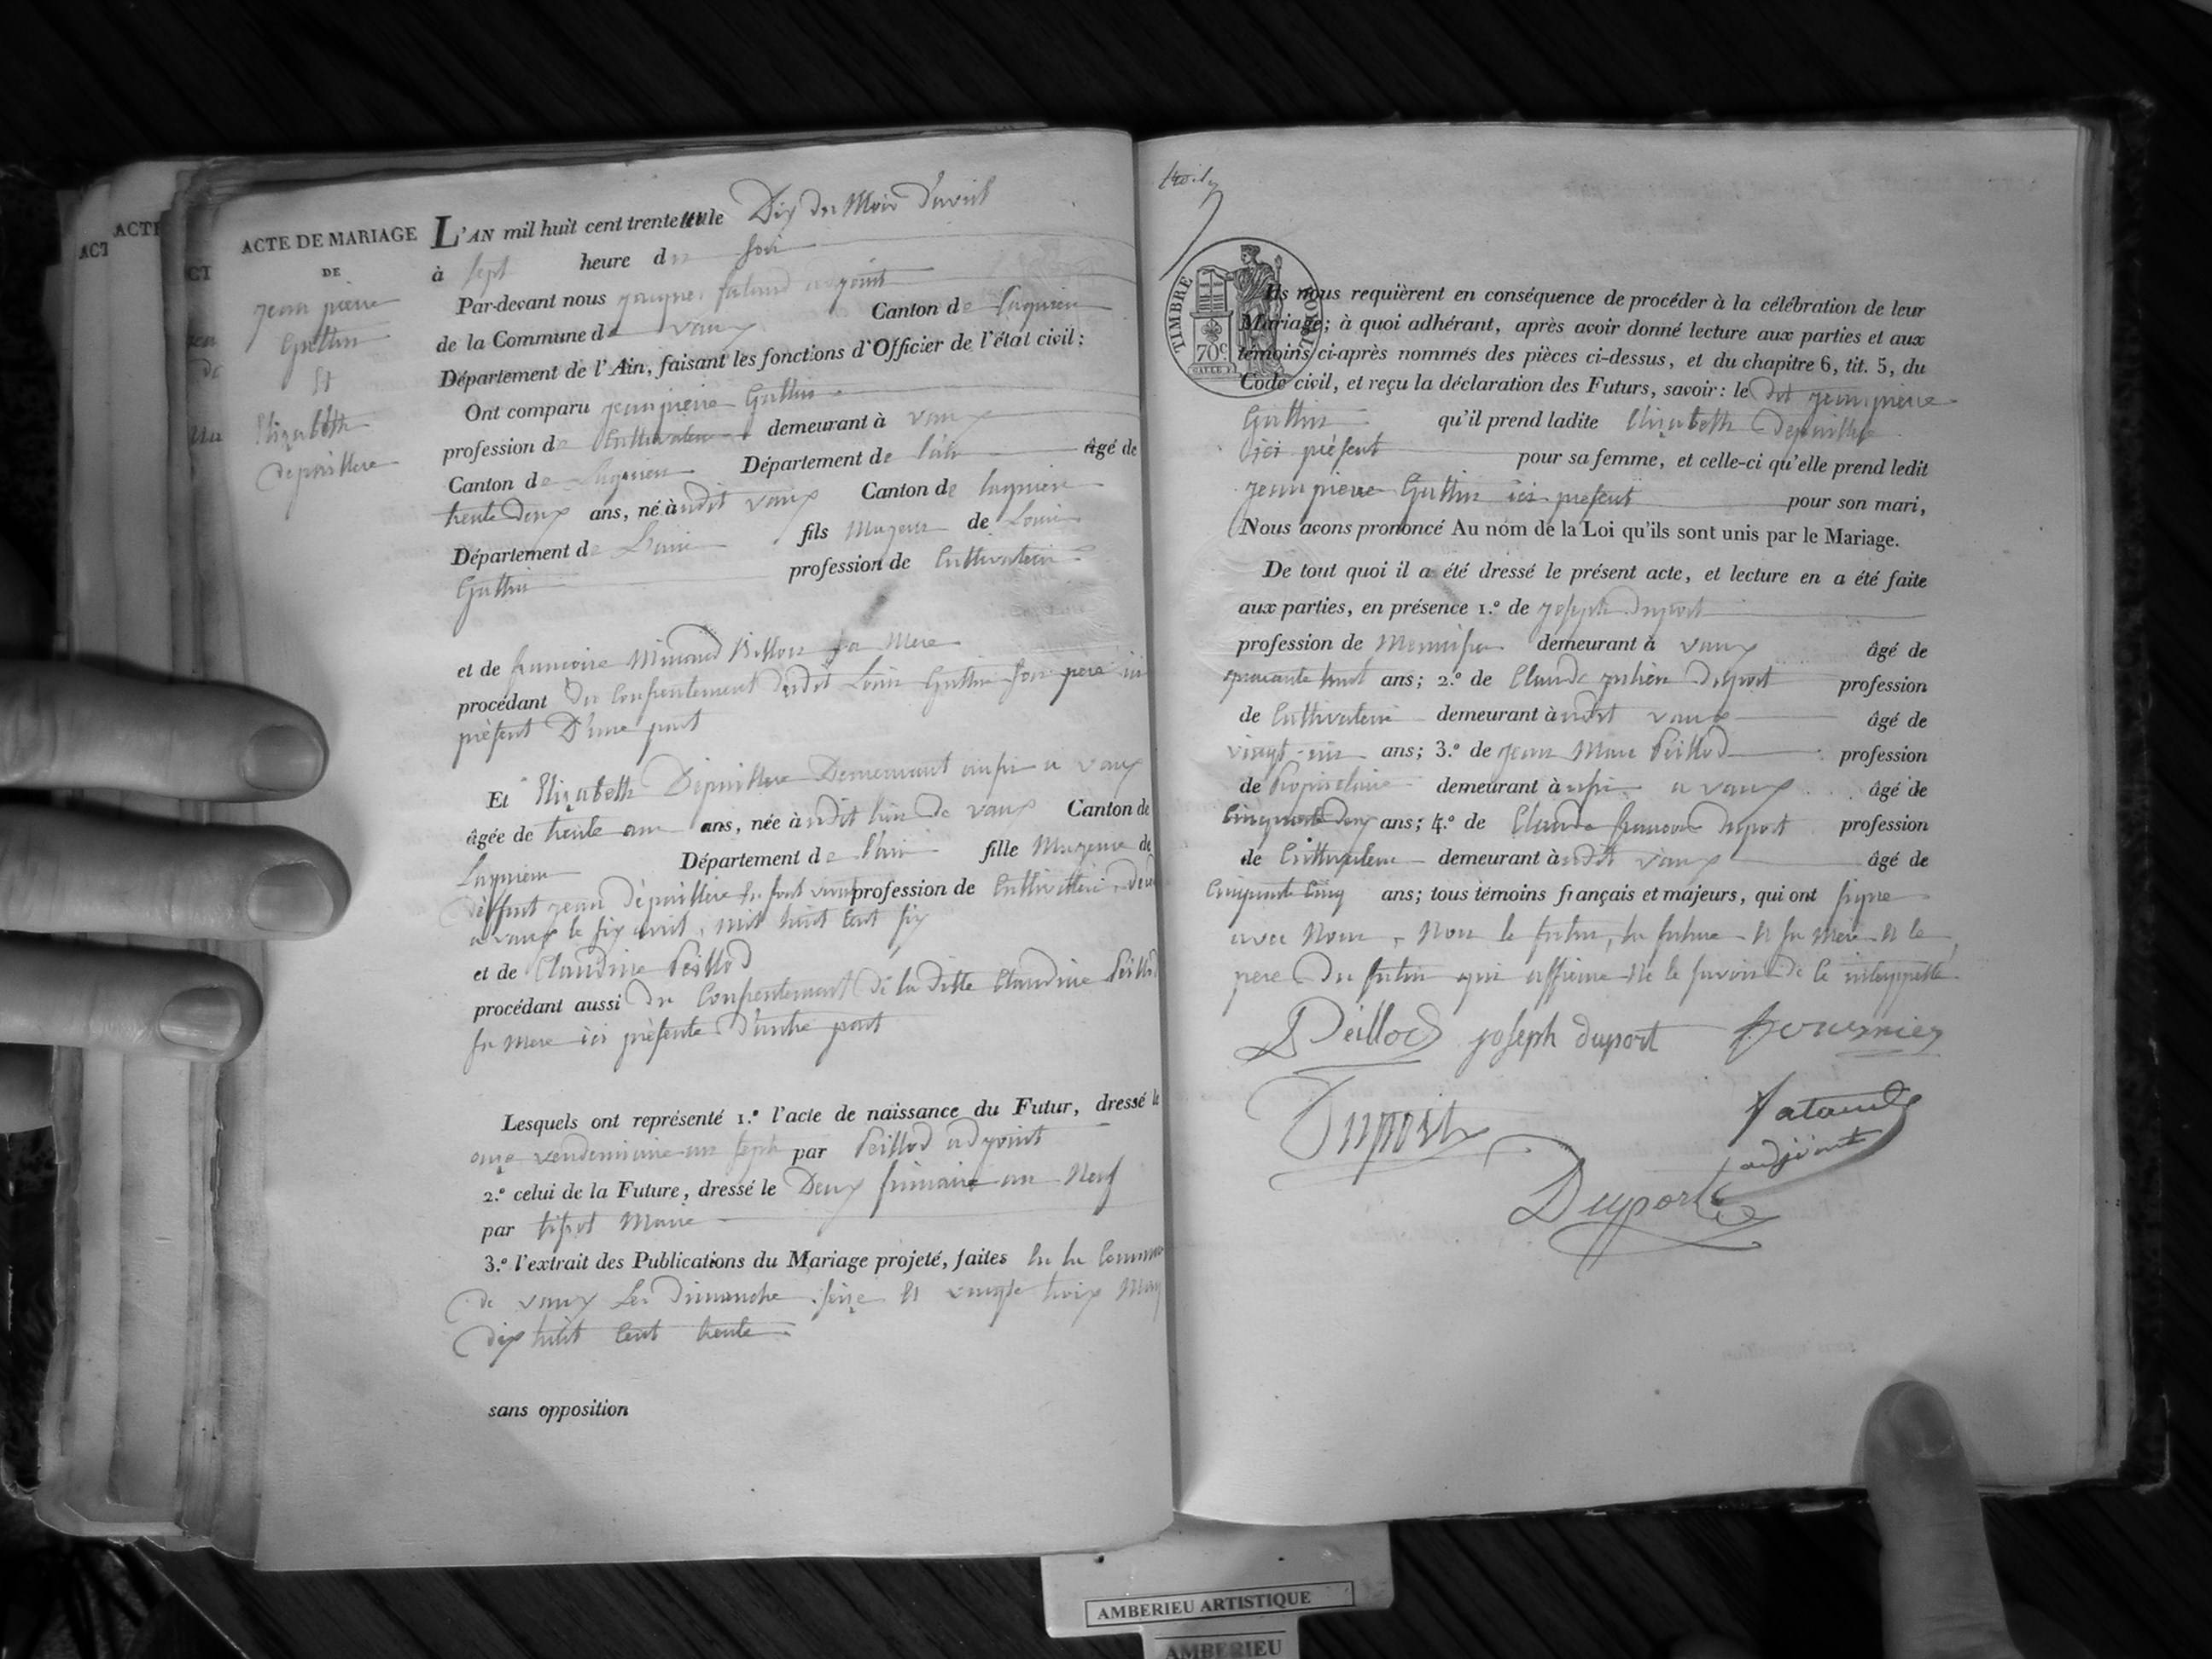 ACTE
ACT
CT
ACTE DE MARIAGE
DE
jean pierre
Guttin
Et
Elizabeth
depaillere
L'AN mil huit cent trente le Dix du Mois d'avril
à sept heure du soir
Par-devant nous jacques adjoint
de la Commune de vaux Canton de lagnieu
Département de l'Ain, faisant les fonctions d'Officier de l'état civil;
Ont comparu jean pierre Guttin
profession de Cultivateur demeurant à vaux
Canton de Lagnieu Département de l'ain âgé de
trente deux ans, né à udit vaux Canton de lagnieu
Département de L'ain fils Majeur de Louis
Guttin profession de Cultivateur
et de francoise Billon sa Mere
procédant du Consentement dudit Louis Guttin son père ici
présent D'une part
Et Elizabeth Dépaillere Demeurant aussi a vaux
âgée de trente ans, née à udit lieu de vaux Canton de
Lagnieu Département de l'ain fille Majeure de
deffunt jean dépaillere profession de Cultivateur
a vaux le six avril, mil huit cent six
et de Claudine Peillod
procédant aussi du Consentement de la ditte Claudine Peillod
sa Mere ici présente d'autre part
Lesquels ont représenté 1.º l'acte de naissance du Futur, dressé le
onze vendemiaire an sept par Peillod adjoint
2.º celui de la Future, dressé le Deux frimaire an Neuf
par Maire
3.º l'extrait des Publications du Mariage projeté, faites
de vaux Les dimanche seize et vingt trois
dix huit cent trente
sans opposition
TIMBRE ROYAL
70c
Ils nous requièrent en conséquence de procéder à la célébration de leur
Mariage; à quoi adhérant, après avoir donné lecture aux parties et aux
témoins ci-après nommés des pièces ci-dessus, et du chapitre 6, tit. 5, du
Code civil, et reçu la déclaration des Futurs, savoir: le dit jean pierre
Guttin qu'il prend ladite Elizabeth Depaillere
ici présent pour sa femme, et celle-ci qu'elle prend ledit
jean pierre Guttin ici présent pour son mari,
Nous avons prononcé Au nom de la Loi qu'ils sont unis par le Mariage.
De tout quoi il a été dressé le présent acte, et lecture en a été faite
aux parties, en présence 1.º de joseph duport
profession de Menuisier demeurant à vaux âgé de
quarante huit ans; 2.º de Claude julien duport profession
de Cultivateur demeurant à udit vaux âgé de
vingt six ans; 3.º de jean Marie Peillod profession
de Propriétaire demeurant à a vaux âgé de
Cinquante deux ans; 4.º de Claude francois duport profession
de Cultivateur demeurant à udit vaux âgé de
Cinquante Cinq ans; tous témoins français et majeurs, qui ont signé
avec Nous, Non le futur, la future et sa Mere et le
pere du futur qui affirme Ne le savoir de Ce interppellé
Peillod joseph duport fournier
Duport
adjoint
Duport
AMBERIEU ARTISTIQUE
AMBERIEU